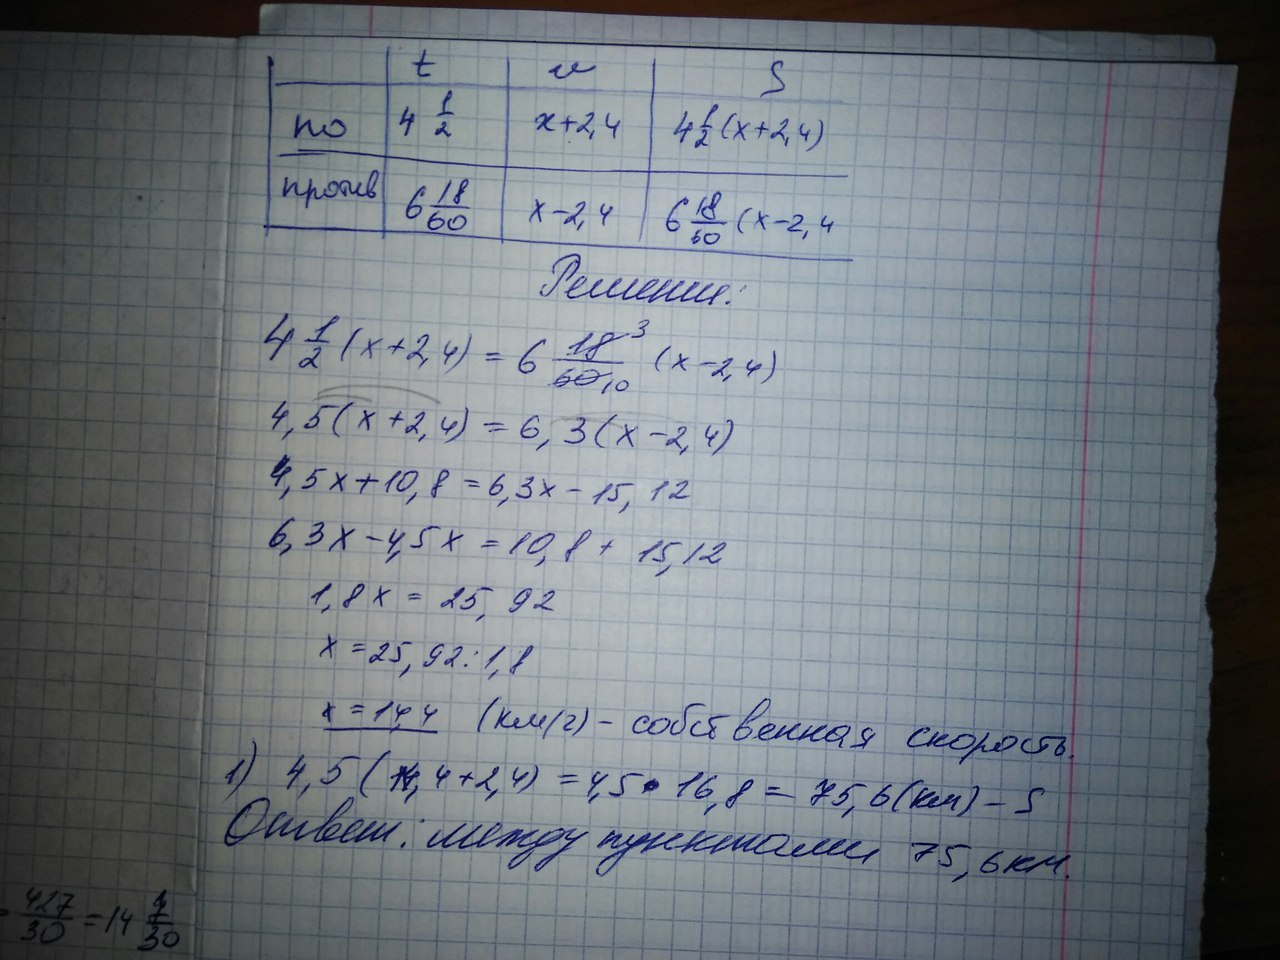 t v S
по 4 1/2 x+2,4 4 1/2 (x+2,4)
против 6 18/60 x-2,4 6 18/60 (x-2,4
Решение:
4 1/2 (x+2,4) = 6 18/60 3 10 (x-2,4)
4,5(x+2,4) = 6,3(x-2,4)
4,5x+10,8 = 6,3x-15,12
6,3x-4,5x = 10,8+15,12
1,8x = 25,92
x = 25,92:1,8
x = 14,4 (км/г) - собственная скорость.
1) 4,5(14,4+2,4) = 4,5•16,8 = 75,6(км) - S
Ответ: между пунктами 75,6 км.
= 427/30 = 14 7/30